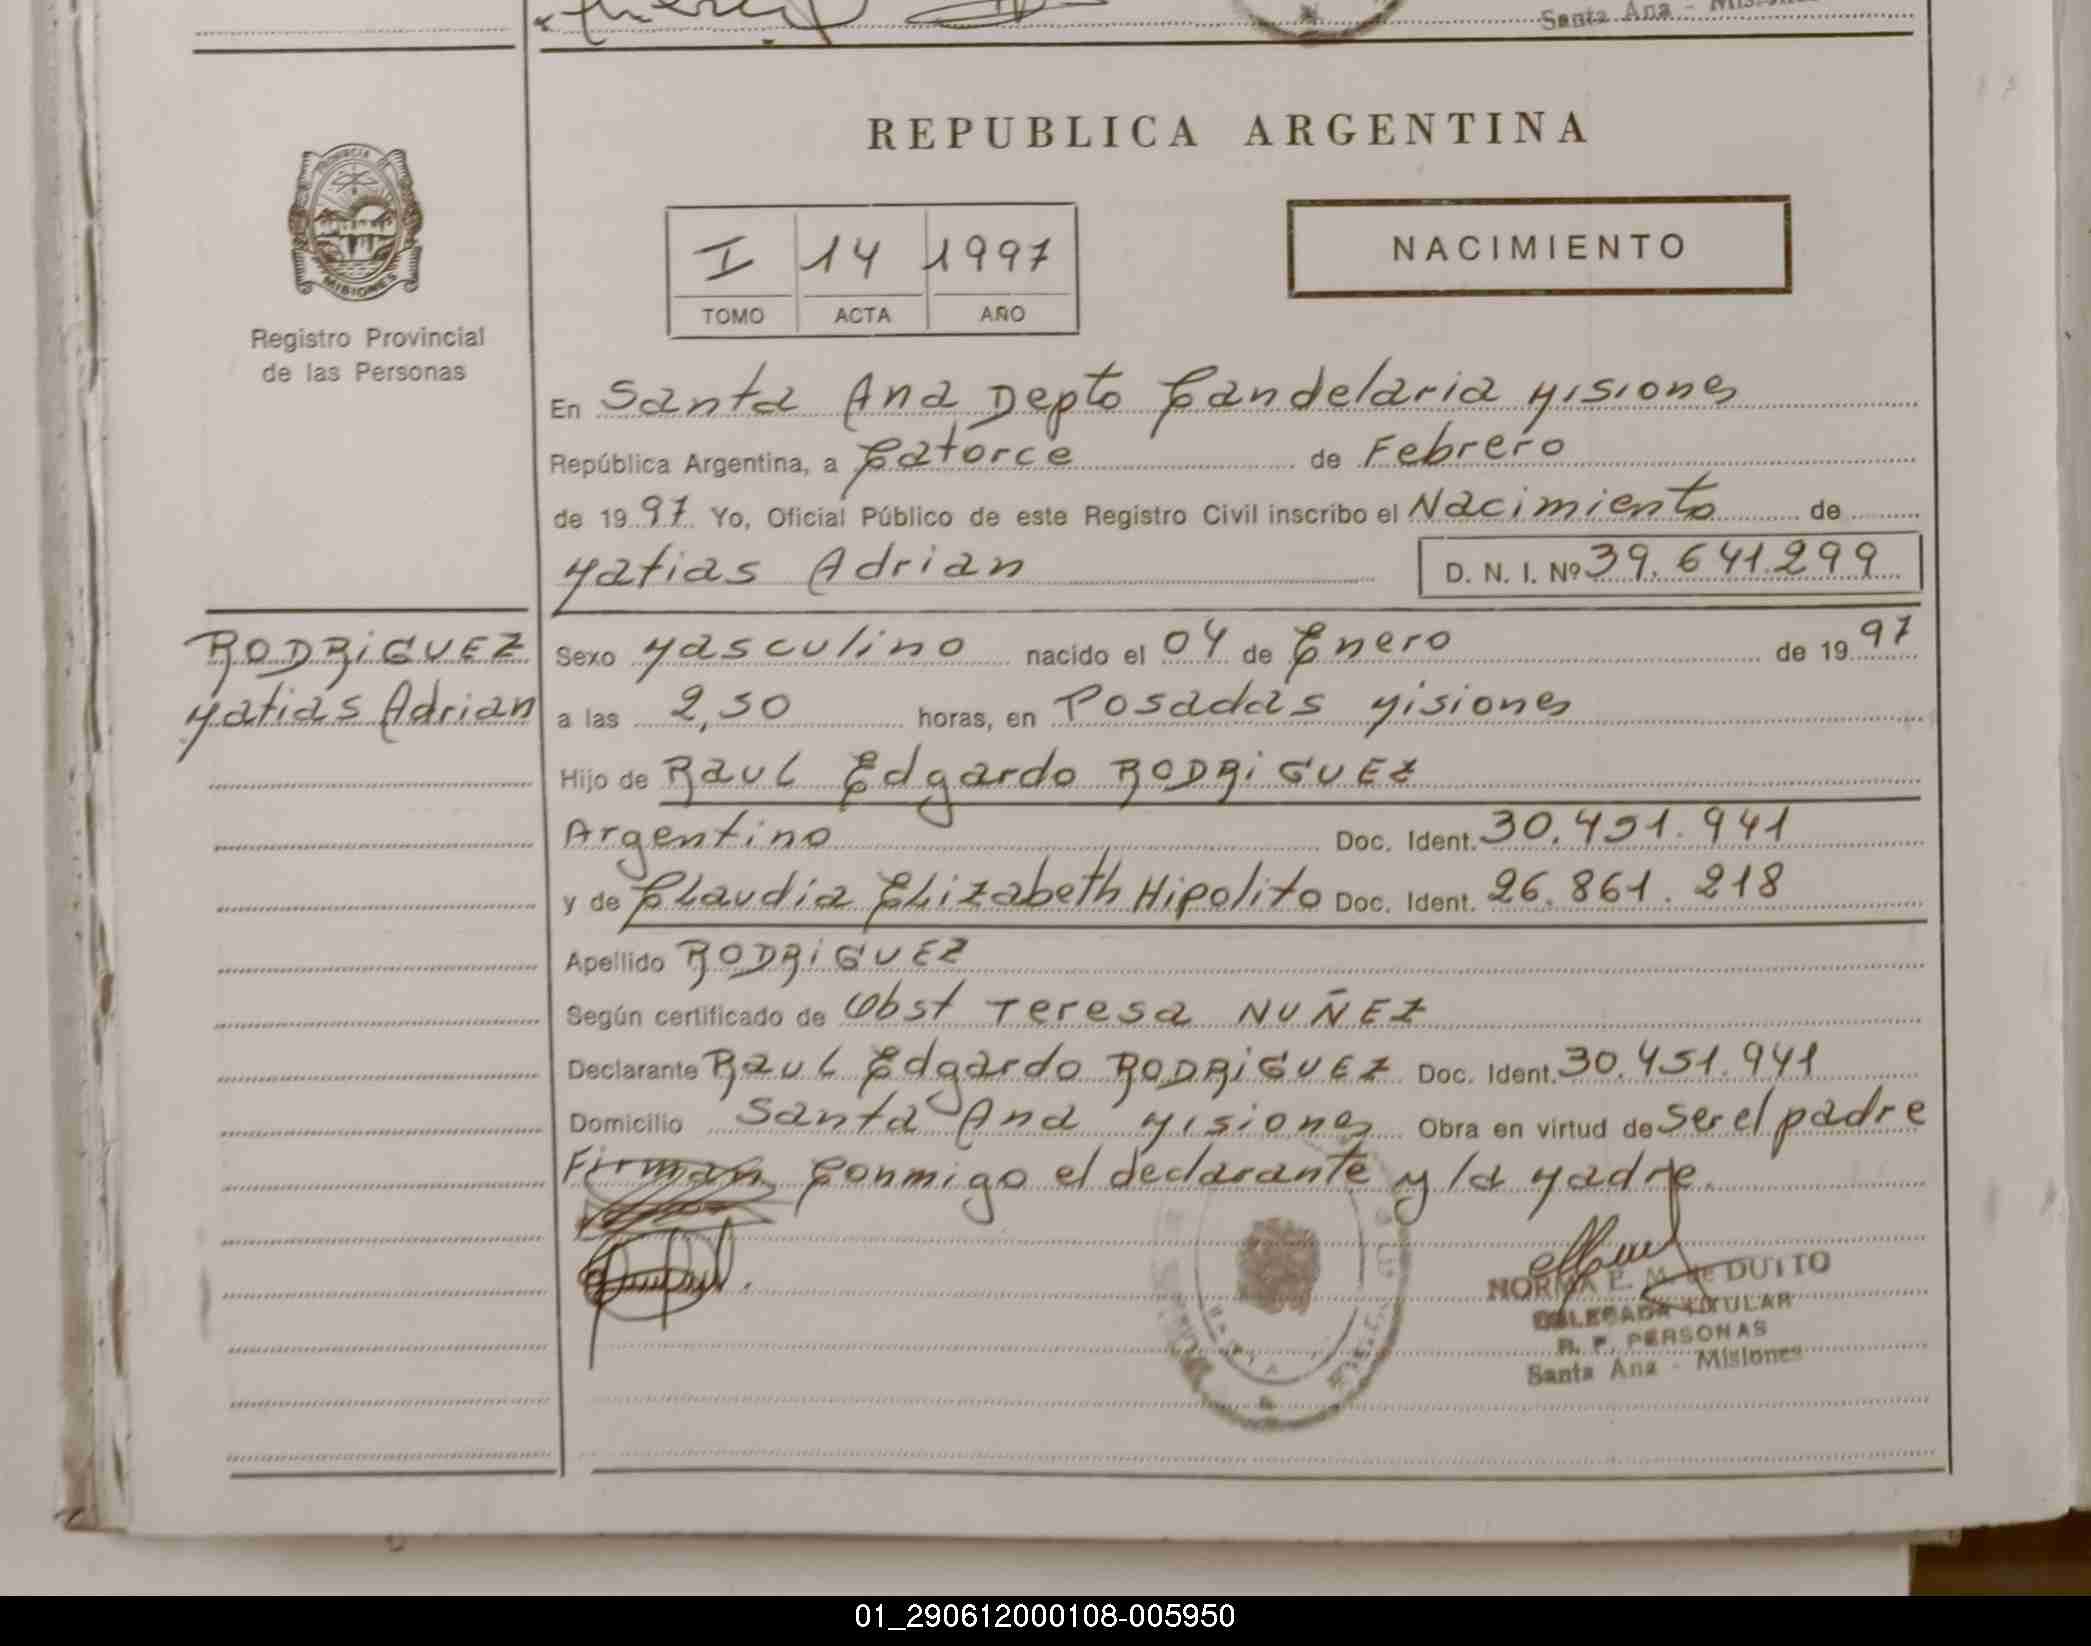 Santa Ana - Misiones
REPUBLICA ARGENTINA
PROVINCIA
MISIONES
Registro Provincial
de las Personas
I 14 1997
TOMO ACTA AÑO
NACIMIENTO
En Santa Ana Depto Candelaria Misiones
República Argentina, a Catorce de Febrero
de 1997 Yo, Oficial Público de este Registro Civil inscribo el Nacimiento de
Matias Adrian D. N. I. Nº 39.641.299
RODRIGUEZ
Matias Adrian
Sexo Masculino nacido el 04 de Enero de 1997
a las 2,50 horas, en Posadas Misiones
Hijo de Raul Edgardo RODRIGUEZ
Argentino Doc. Ident. 30.451.941
y de Claudia Elizabeth Hipolito Doc. Ident. 26.861.218
Apellido RODRIGUEZ
Según certificado de Obst Teresa NUÑEZ
Declarante Raul Edgardo RODRIGUEZ Doc. Ident. 30.451.941
Domicilio Santa Ana Misiones Obra en virtud de ser el padre
Firman Conmigo el declarante y la Madre.
NORMA E. M. de DUITO
DELEGADA TITULAR
R. P. PERSONAS
Santa Ana - Misiones
01_290612000108-005950